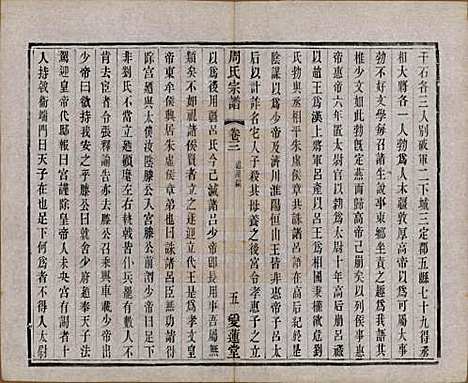 干石各三人別破軍二下城三定郡五縣七十九得丞
相大將各一人勃為人木彊敦厚高帝以為可屬大事
勃不好文學每召諸生說事東鄉坐而責之趣為我語其
椎少文如此勃既定燕而歸高帝已崩矣以列侯事惠
帝惠帝六年置太尉官以勃為太尉十年高后崩呂祿
以趙王為漢上將軍呂產以呂王為漢相國秉權欲危劉
氏勃與丞相平朱虛侯章共誅諸呂語在呂后紀於是
陰謀以為少帝及濟川淮陽恒山王皆非惠帝子呂太
后以計詐名它人子殺其母養之後宮令孝惠子之立
周氏宗譜 卷三 五 愛蓮堂
以為後用彊呂氏今已滅諸呂少帝即長用事吾屬無
類矣不如視諸侯賢者立之遂迎立代王是為孝文皇
帝東牟侯興居朱虛侯章弟也曰誅諸呂臣無功請得
除宮迺與太僕汝陰滕公入宮滕公前謂少帝曰足下
非劉氏不當立乃顧麾左右執戟者皆仆兵罷有數人不
肯去宦者令張釋諭告亦去滕公召乘輿車載少帝出
少帝曰欲持我安之乎滕公曰就舍少府迺奉天子法
駕迎皇帝代邸報曰宮謹除皇帝入未央宮有謁者十
人持戟衛端門曰天子在也足下何為者不得入太尉